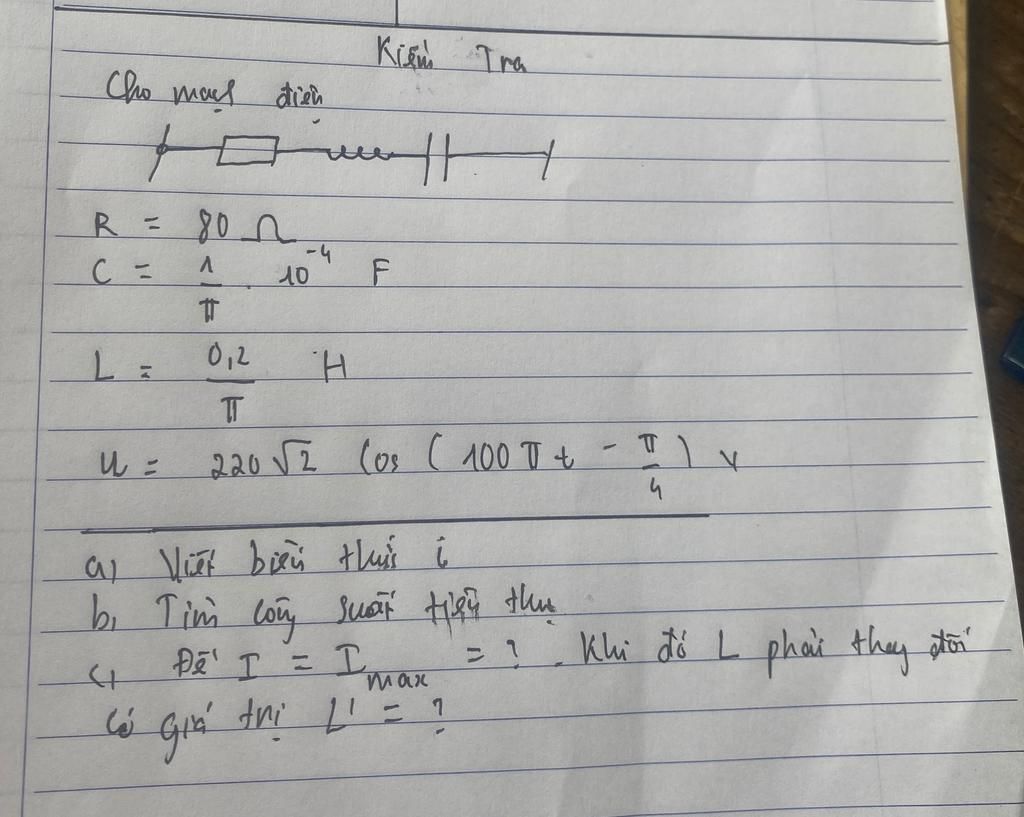 Kiểm Tra
Cho mạch điện
R = 80 Ω
C = 1/π . 10⁻⁴ F
L = 0,2/π H
u = 220√2 Cos ( 100πt - π/4 ) V
a) Viết biểu thức i
b) Tìm công suất tiêu thụ
c) Để I = I max = ? . Khi đó L phải thay đổi
Có giá trị L' = ?